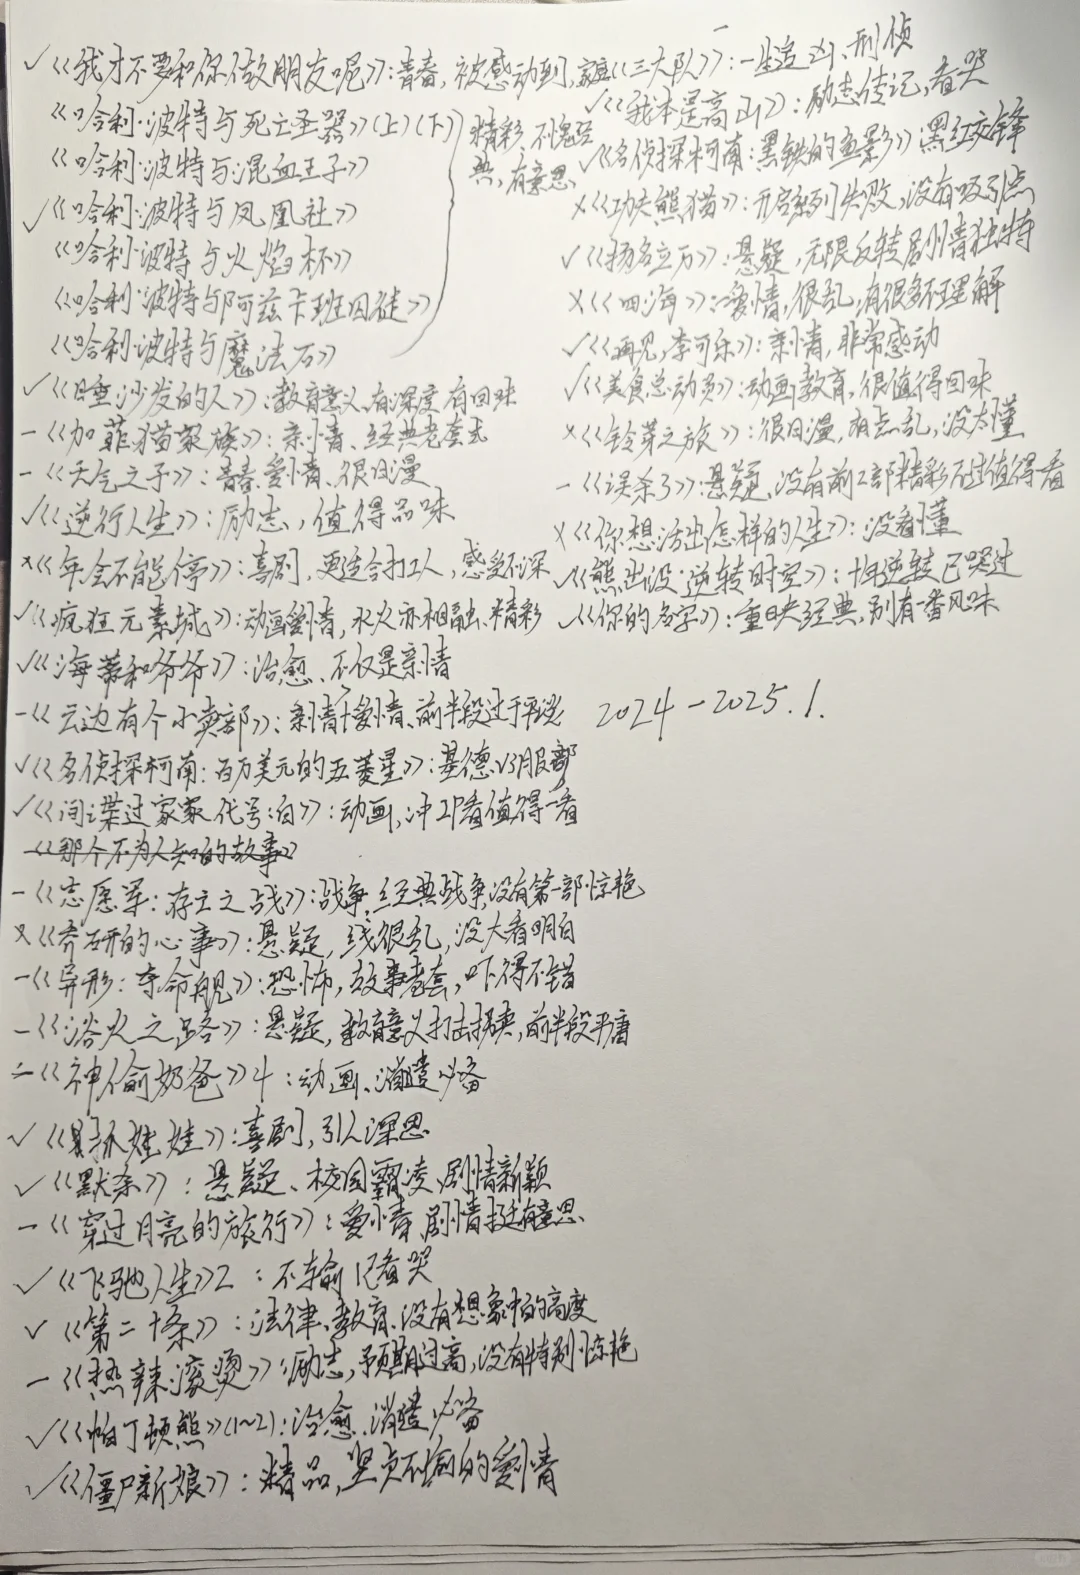 ✓《我才不要和你做朋友呢》:青春,被感动到,家庭
《哈利·波特与死亡圣器》(上)(下)
《哈利·波特与混血王子》
✓《哈利·波特与凤凰社》
《哈利·波特与火焰杯》
《哈利·波特与阿兹卡班囚徒》
《哈利·波特与魔法石》
精彩、不愧经
典,有意思
✓《睡沙发的人》:教育意义、有深度有回味
-《加菲猫家族》:亲情、经典老套式
-《天气之子》:青春、爱情、很日漫
✓《逆行人生》:励志,值得品味
×《年会不能停》:喜剧,更适合打工人,感受不深
✓《疯狂元素城》:动画爱情,水火亦相融、精彩
✓《海蒂和爷爷》:治愈、不仅是亲情
-《云边有个小卖部》:亲情+爱情、前半段过于平淡
✓《名侦探柯南:百万美元的五菱星》:基德vs服部
✓《间谍过家家 代号:白》:动画,冲IP看值得一看
《那个不为人知的故事》
-《志愿军:存亡之战》:战争,经典战争,没有第一部惊艳
×《乔妍的心事》:悬疑,线很乱,没大看明白
-《异形:夺命舰》:恐怖,故事老套,吓得不错
-《浴火之路》:悬疑,教育意义打击拐卖,前半段平庸
-《神偷奶爸》4:动画、消遣必备
✓《抓娃娃》:喜剧,引人深思
✓《默杀》:悬疑、校园霸凌、剧情新颖
-《穿过月亮的旅行》:爱情,剧情挺有意思
✓《飞驰人生》2:不输1已看哭
✓《第二十条》:法律、教育、没有想象中的高度
-《热辣滚烫》:励志,预期过高,没有特别惊艳
✓《帕丁顿熊》(1~2):治愈、消遣必备
✓《僵尸新娘》:精品,坚贞不渝的爱情
-《三大队》:一生追凶、刑侦
✓《我本是高山》:励志传记,看哭
✓《名侦探柯南:黑铁的鱼影》黑红交锋
×《功夫熊猫》:开启系列失败,没有吸引点
✓《扬名立万》:悬疑,无限反转剧情独特
×《四海》:爱情,很乱,有很多不理解
✓《再见,李可乐》:亲情,非常感动
✓《美食总动员》:动画教育,很值得回味
×《铃芽之旅》:很日漫,有点乱,没太懂
-《误杀3》:悬疑、没有前2部精彩不过值得看
×《你想活出怎样的人生》:没看懂
✓《熊出没·逆转时空》:十年逆转已哭过
✓《你的名字》:重映经典,别有一番风味
2024-2025.1.